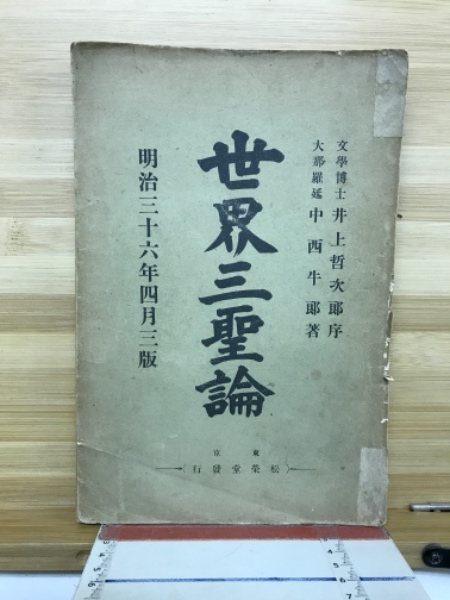 文學博士 井上哲次郎序
大那羅延 中西牛郎著
世界三聖論
明治三十六年四月三版
東京
松榮堂發行